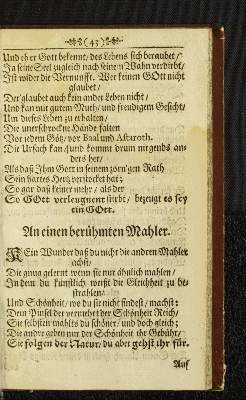 ( 43 )
Und eh er Gott bekennt, des Lebens sich beraubet/
Ja seine Seel zugleich nach seinem Wahn verdirbt/
Ist wider die Vernunfft. Wer keinen GOtt nicht
glaubet/
Der glaubt auch kein ander Leben nicht/
Und kan mit gutem Muth/ und freudigem Gesicht/
Um dieses Leben zu erhalten
Die unerschrockne Hände falten
Vor iedem Götz/ vor Baal und Astaroth.
Die Ursach kan/ und kommt drum nirgends an-
ders her/
Als daß Ihm Gott in seinem zorn'gen Rath
Sein hartes Hertz verstocket hat;
So gar daß keiner mehr/ als der
So GOtt verleugnent stirbt/ bezeugt es sey
ein GOtt.
An einen berühmten Mahler.
KEin Wunder daß du nicht die andren Mahler
achst/
Die gnug gelernt wenn sie nur ähnlich mahlen/
In dem du künstlich weist die Gleichheit zu be-
strahlen/
Und Schönheit/ wo du sie nicht findest/ machst:
Dein Pinsel der vermehrt der Schönheit Reich/
Sie selbsten mahlst du schöner/ und doch gleich;
Die andre geben nur der Schönheit ihr Gebühr/
Sie folgen der Natur/ du aber gehst ihr für.
Auf